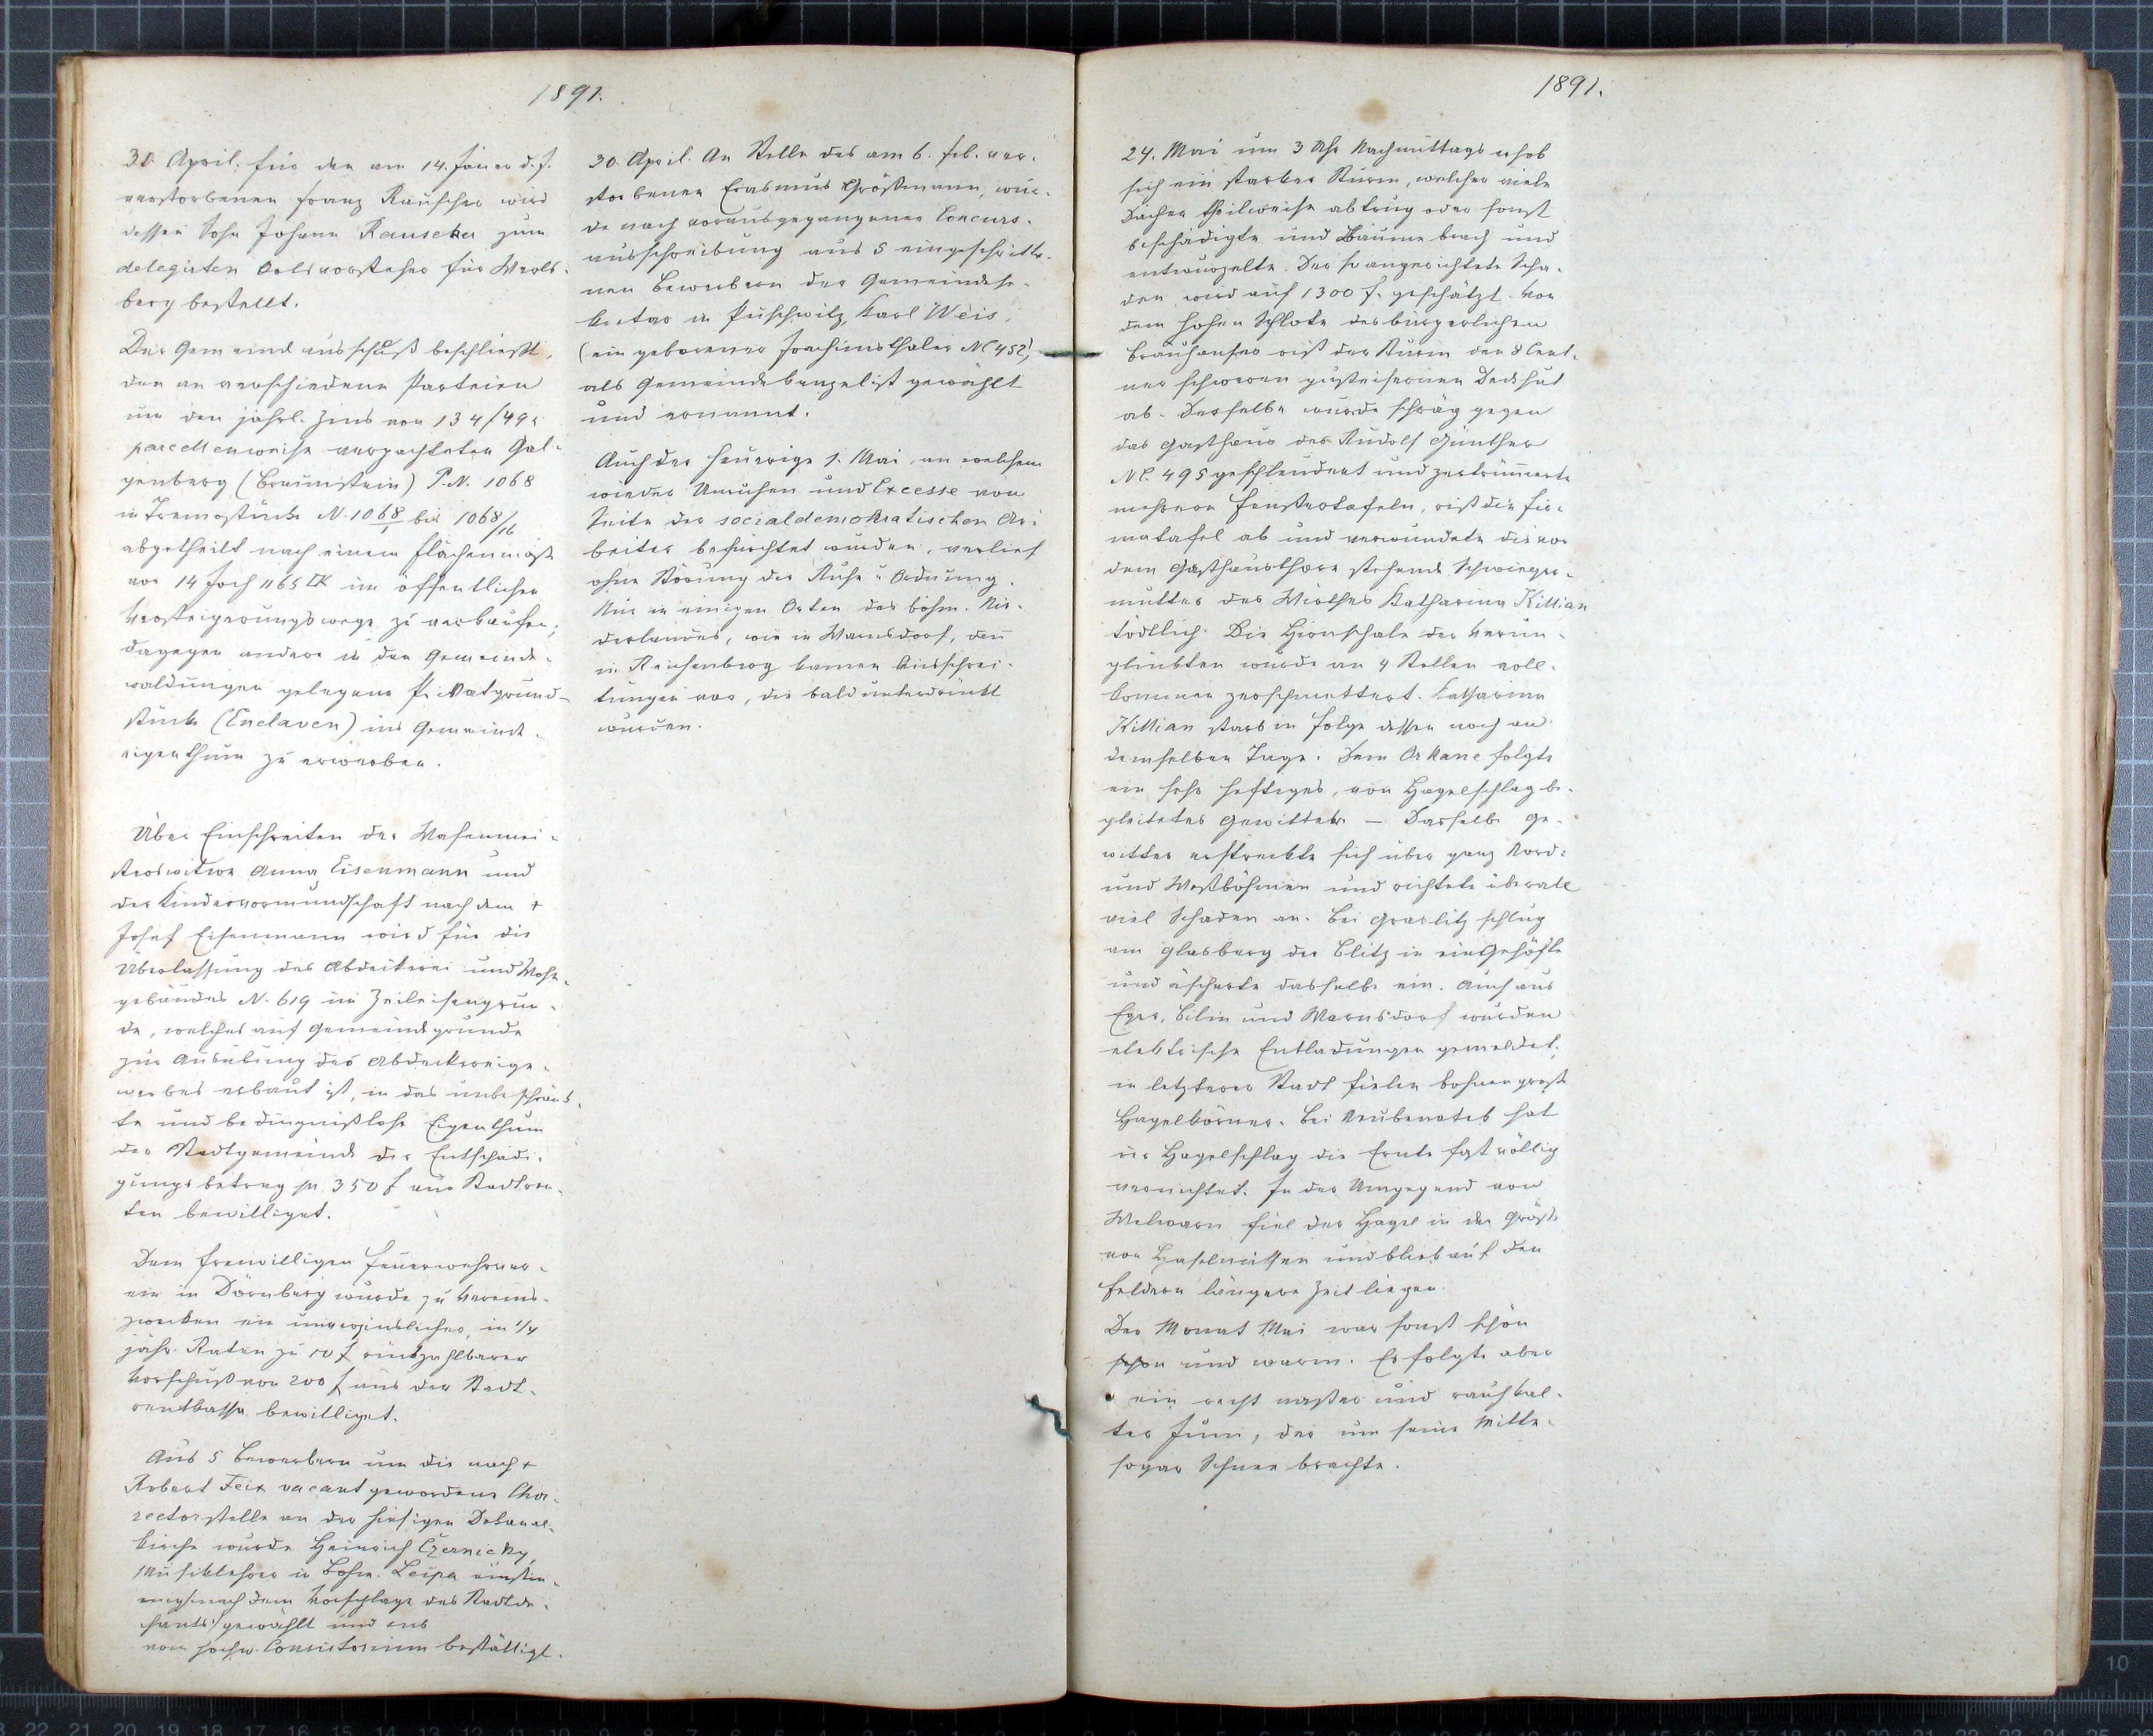 1891.
30. April. Für den am 14. Jäner d. J.
verstorbenen Franz Rauscher wird
dessen Sohn Johann Rauscher zum
delegirten Ortsvorsteher für Werls-
berg bestellt.
Der Gemeindeausschuß beschließt,
den an verschiedene Parteien
um den jährl. Zins von 134/49 x
parcellenweise verpachteten Gal-
genberg (Braunstein) P.N. 1068
in Trennstücke N. 1068/1 bis 1068/16
abgetheilt nach einem Flächenmaße
von 14 Joch 1165 □K im öffentlichen
Versteigerungswege zu verkaufen;
dagegen andere in den Gemeinde-
waldungen gelegene Privatgrund-
stücke (Enclaven) ins Gemeinde-
eigenthum zu erwerben.
Über Einschreiten der Wasenmei-
sterswitwe Anna Eisenmann und
der Kindervormundschaft nach dem +
Josef Eisenmann wird für die
Überlassung des Abdeckerei und Wohn-
gebäudes N. 619 im Zeileisengrun-
de, welches auf Gemeindegrunde
zur Ausübung des Abdeckereige-
werbes erbaut ist, in das unbeschränk-
te und bedingnißlose Eigenthum
der Stadtgemeinde der Entschädi-
gungsbetrag pr 350 f aus Stadtren-
ten bewilliget.
Dem freiwilligen Feuerwehrver-
ein in Dürnberg wurde zu Vereins-
zwecken ein unverzinslicher, in 1/4
jähr. Raten zu 10 f rückzahlbarer
Vorschuß von 200 f aus der Stadt-
rentkassa bewilliget.
Aus 5 Bewerbern um die nach +
Robert Feix vacant gewordene Chor-
rectorstelle an der hiesigen Dekanal-
kirche wurde Heinrich Czernicky,
Musiklehrer in Böhm. Leipa einstim-
mig nach dem Vorschlage des Stadtde-
chants gewählt und
vom hochw. Consistorium bestättigt.
30. April. An Stelle des am 6. Feb. ver-
storbenen Erasmus Größmann, wur-
de nach vorausgegangener Concurs-
ausschreibung aus 5 eingeschritte-
nen Bewerbern der Gemeindese-
kretar in Puschwitz, Karl Weis,
(ein geborener Joachimsthaler NC 452),
als Gemeindekanzelist gewählt
und ernannt.
Auch der heurige 1. Mai, an welchem
wieder Unruhen und Excesse von
Seite der socialdemokratischen Ar-
beiter befürchtet wurden, verlief
ohne Störung der Ruhe u Ordnung.
Nur in einigen Orten des böhm. Nie-
derlandes, wie in Warnsdorf, dann
in Reichenberg kamen Ausschrei-
tungen vor, die bald unterdrückt
wurden.
1891.
24. Mai um 3 Uhr Nachmittags erhob
sich ein starker Sturm, welcher viele
Dächer theilweise abtrug oder sonst
beschädigte und Bäume brach und
entwurzelte. Der so angerichtete Scha-
den wird auf 1300 f. geschätzt. Von
dem hohen Schlote des bürgerlichen
Brauhauses riß der Sturm den 8 Cent-
ner schweren gußeisernen Deckhut
ab. Derselbe wurde schräg gegen
das Gasthaus des Rudolf Günther
NC. 495 geschleudert und zertrümmerte
mehrere Fenstertafeln, riß die Fir-
matafel ab und verwundete die vor
dem Gasthausthore stehende Schwieger-
mutter des Wirthes Katharina Killian
tödtlich. Die Hirnschale der Verun-
glückten wurde an 4 Stellen voll-
kommen zerschmettert. Katharina
Killian starb in Folge dessen noch an
demselben Tage. Dem Orkane folgte
ein sehr heftiges, von Hagelschlag be-
gleitetes Gewitter. — Dasselbe Ge-
witter erstreckte sich über ganz Nord-
und Westböhmen und richtete überall
viel Schaden an. Bei Graslitz schlug
am Glasberg der Blitz in ein Gehöfte
und äscherte dasselbe ein. Auch aus
Eger, Bilin und Warnsdorf wurden
elektrische Entladungen gemeldet;
in letzterer Stadt fielen bohnengroße
Hagelkörner. Bei Neubenatek hat
ein Hagelschlag die Ernte fast völlig
vernichtet. In der Umgegend von
Welwarn fiel der Hagel in der Größe
von Haselnüssen und blieb auf den
Feldern längere Zeit liegen.
Der Monat Mai war sonst schön
schon und warm. Es folgte aber
ein recht naßer und rauhkal-
ter Juni, der um seine Mitte
sogar Schnee brachte.